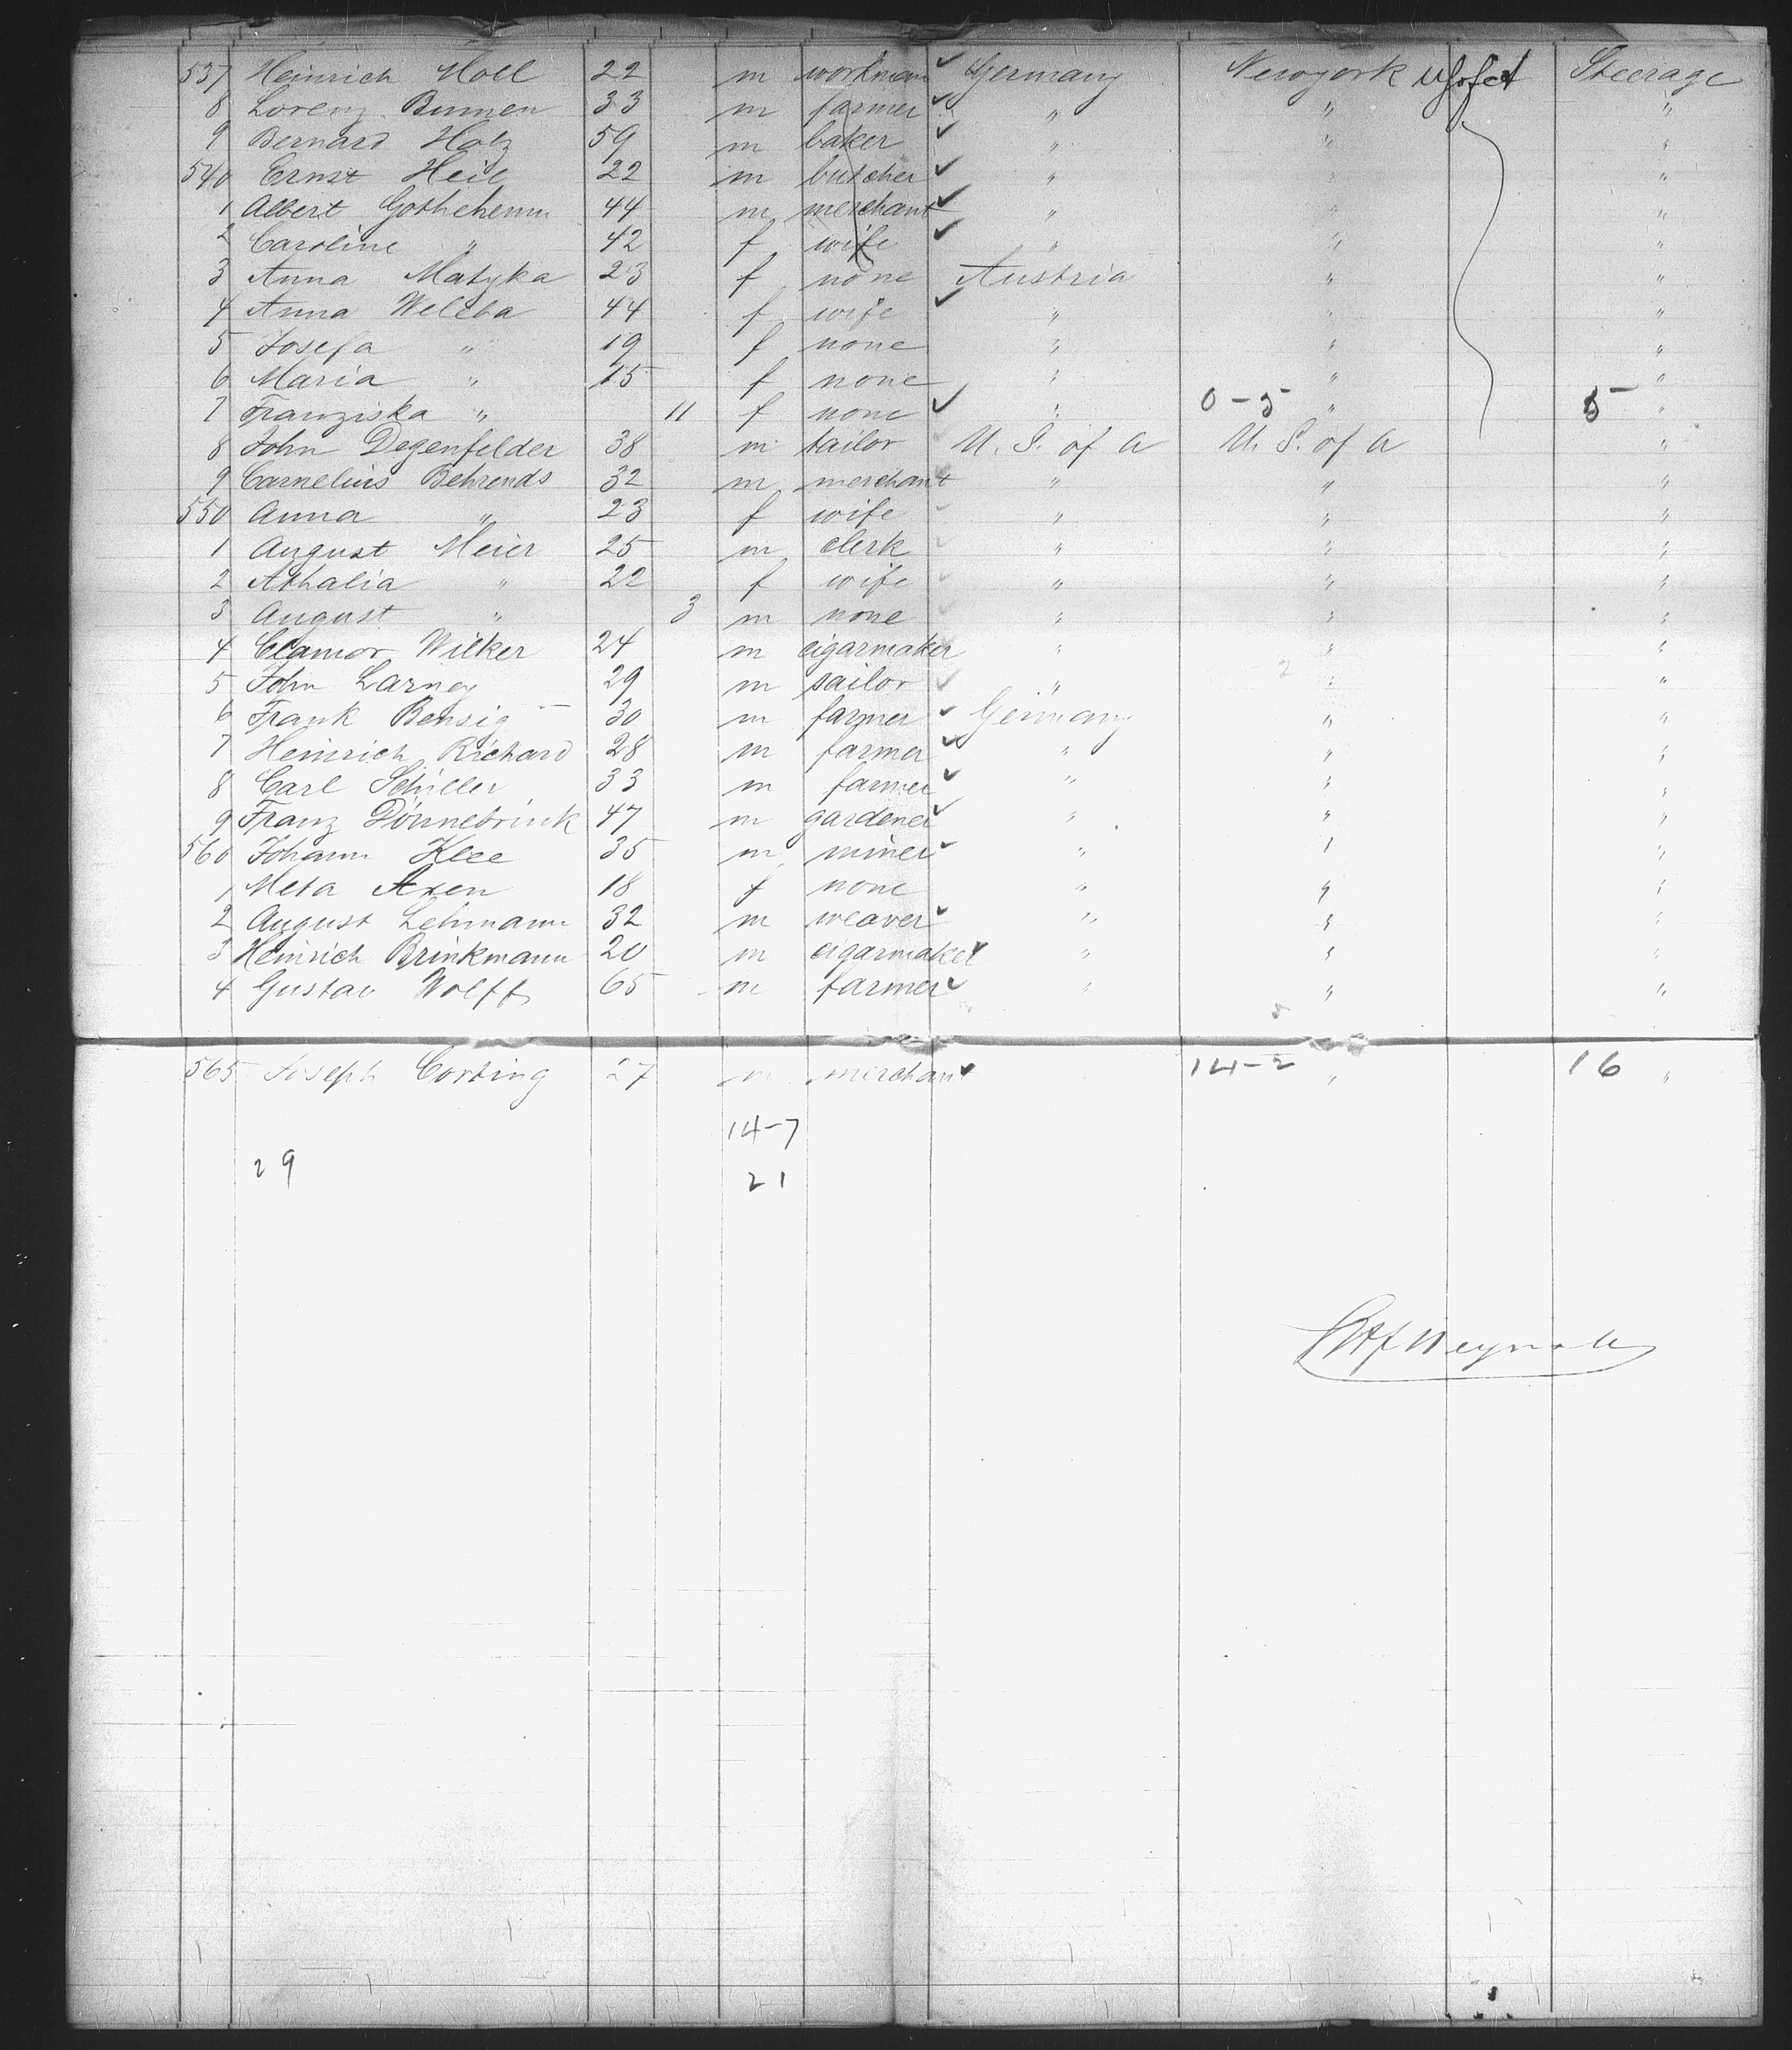 537 Heinrich Moll 22 m workman ✓ Germany Newyork Steerage
8 Lorenz Bumen 33 m farmer ✓ " " "
9 Bernard Holz 59 m baker ✓ " " "
540 Ernst Heil 22 m butcher ✓ " " "
1 Albert 44 m merchant ✓ " " "
2 Caroline " 42 f wife ✓ " " "
3 Anna Matyka 23 f none Austria " "
4 Anna Weleba 44 f wife ✓ " " "
5 Josefa " 19 f none " " "
6 Maria " 15 f none " " "
7 Franziska " 11 f none ✓ " 0-5 " 5 "
8 John Degenfelder 38 m tailor U. S. of A U. S. of A "
9 Carnelius Behrends 32 m merchant " " "
550 Anna " 23 f wife " " "
1 August Meier 25 m clerk " " "
2 Athalia " 22 f wife " " "
3 August " 3 m none " " "
4 Clamor Wilker 24 m cigarmaker " " "
5 John Larney 29 m sailor " " "
6 Frank Bensig 30 m farmer ✓ Germany " "
7 Heinrich Richard 28 m farmer ✓ " " "
8 Carl Schiller 33 m farmer ✓ " " "
9 Franz Dönnebrink 47 m gardener ✓ " " "
560 Johann Klee 35 m miner ✓ " " "
1 Meta Axen 18 f none " " "
2 August Lehmann 32 m weaver ✓ " " "
3 Heinrich Brinkmann 20 m cigarmaker ✓ " " "
4 Gustav Wolff 65 m farmer ✓ " " "
565 Joseph Corbing 27 m merchant ✓ 14-2 " 16 "
14-7
29 21